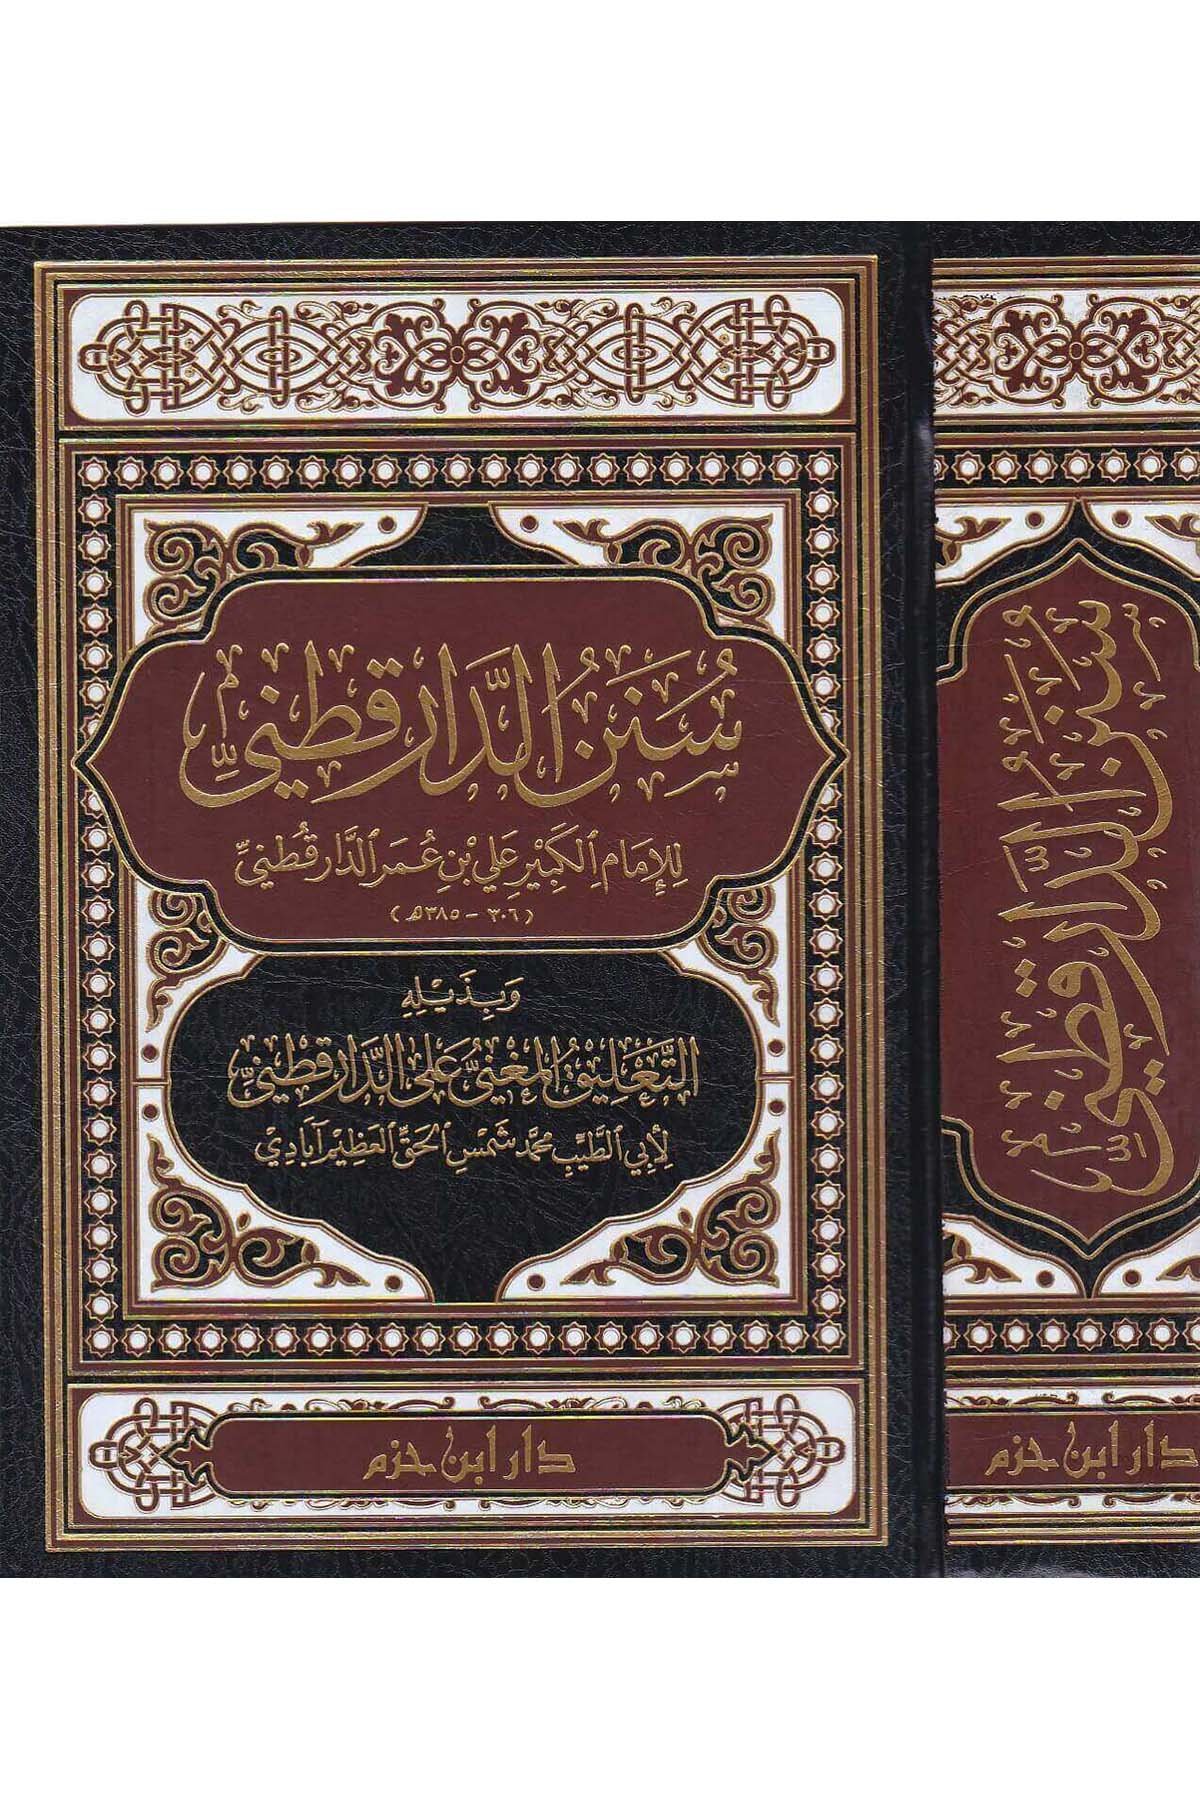 سُنَنُ الدَّارقطنيِّ
للإمَامِ الكَبِيْر عَلي بْنِ عُمَر الدَّارقُطنيِّ
(٣٠٦ - ٣٨٥هـ)
وَبِذَيْلِهِ
التَّعليق المُغني عَلى الدَّارقطنيِّ
لأَبي الطَّيِّب محمَّد شَمْسِ الحَقِّ العَظِيْم آبَادِيْ
دار ابن حزم
سُنَنُ الدَّارقطنيِّ
دار ابن حزم